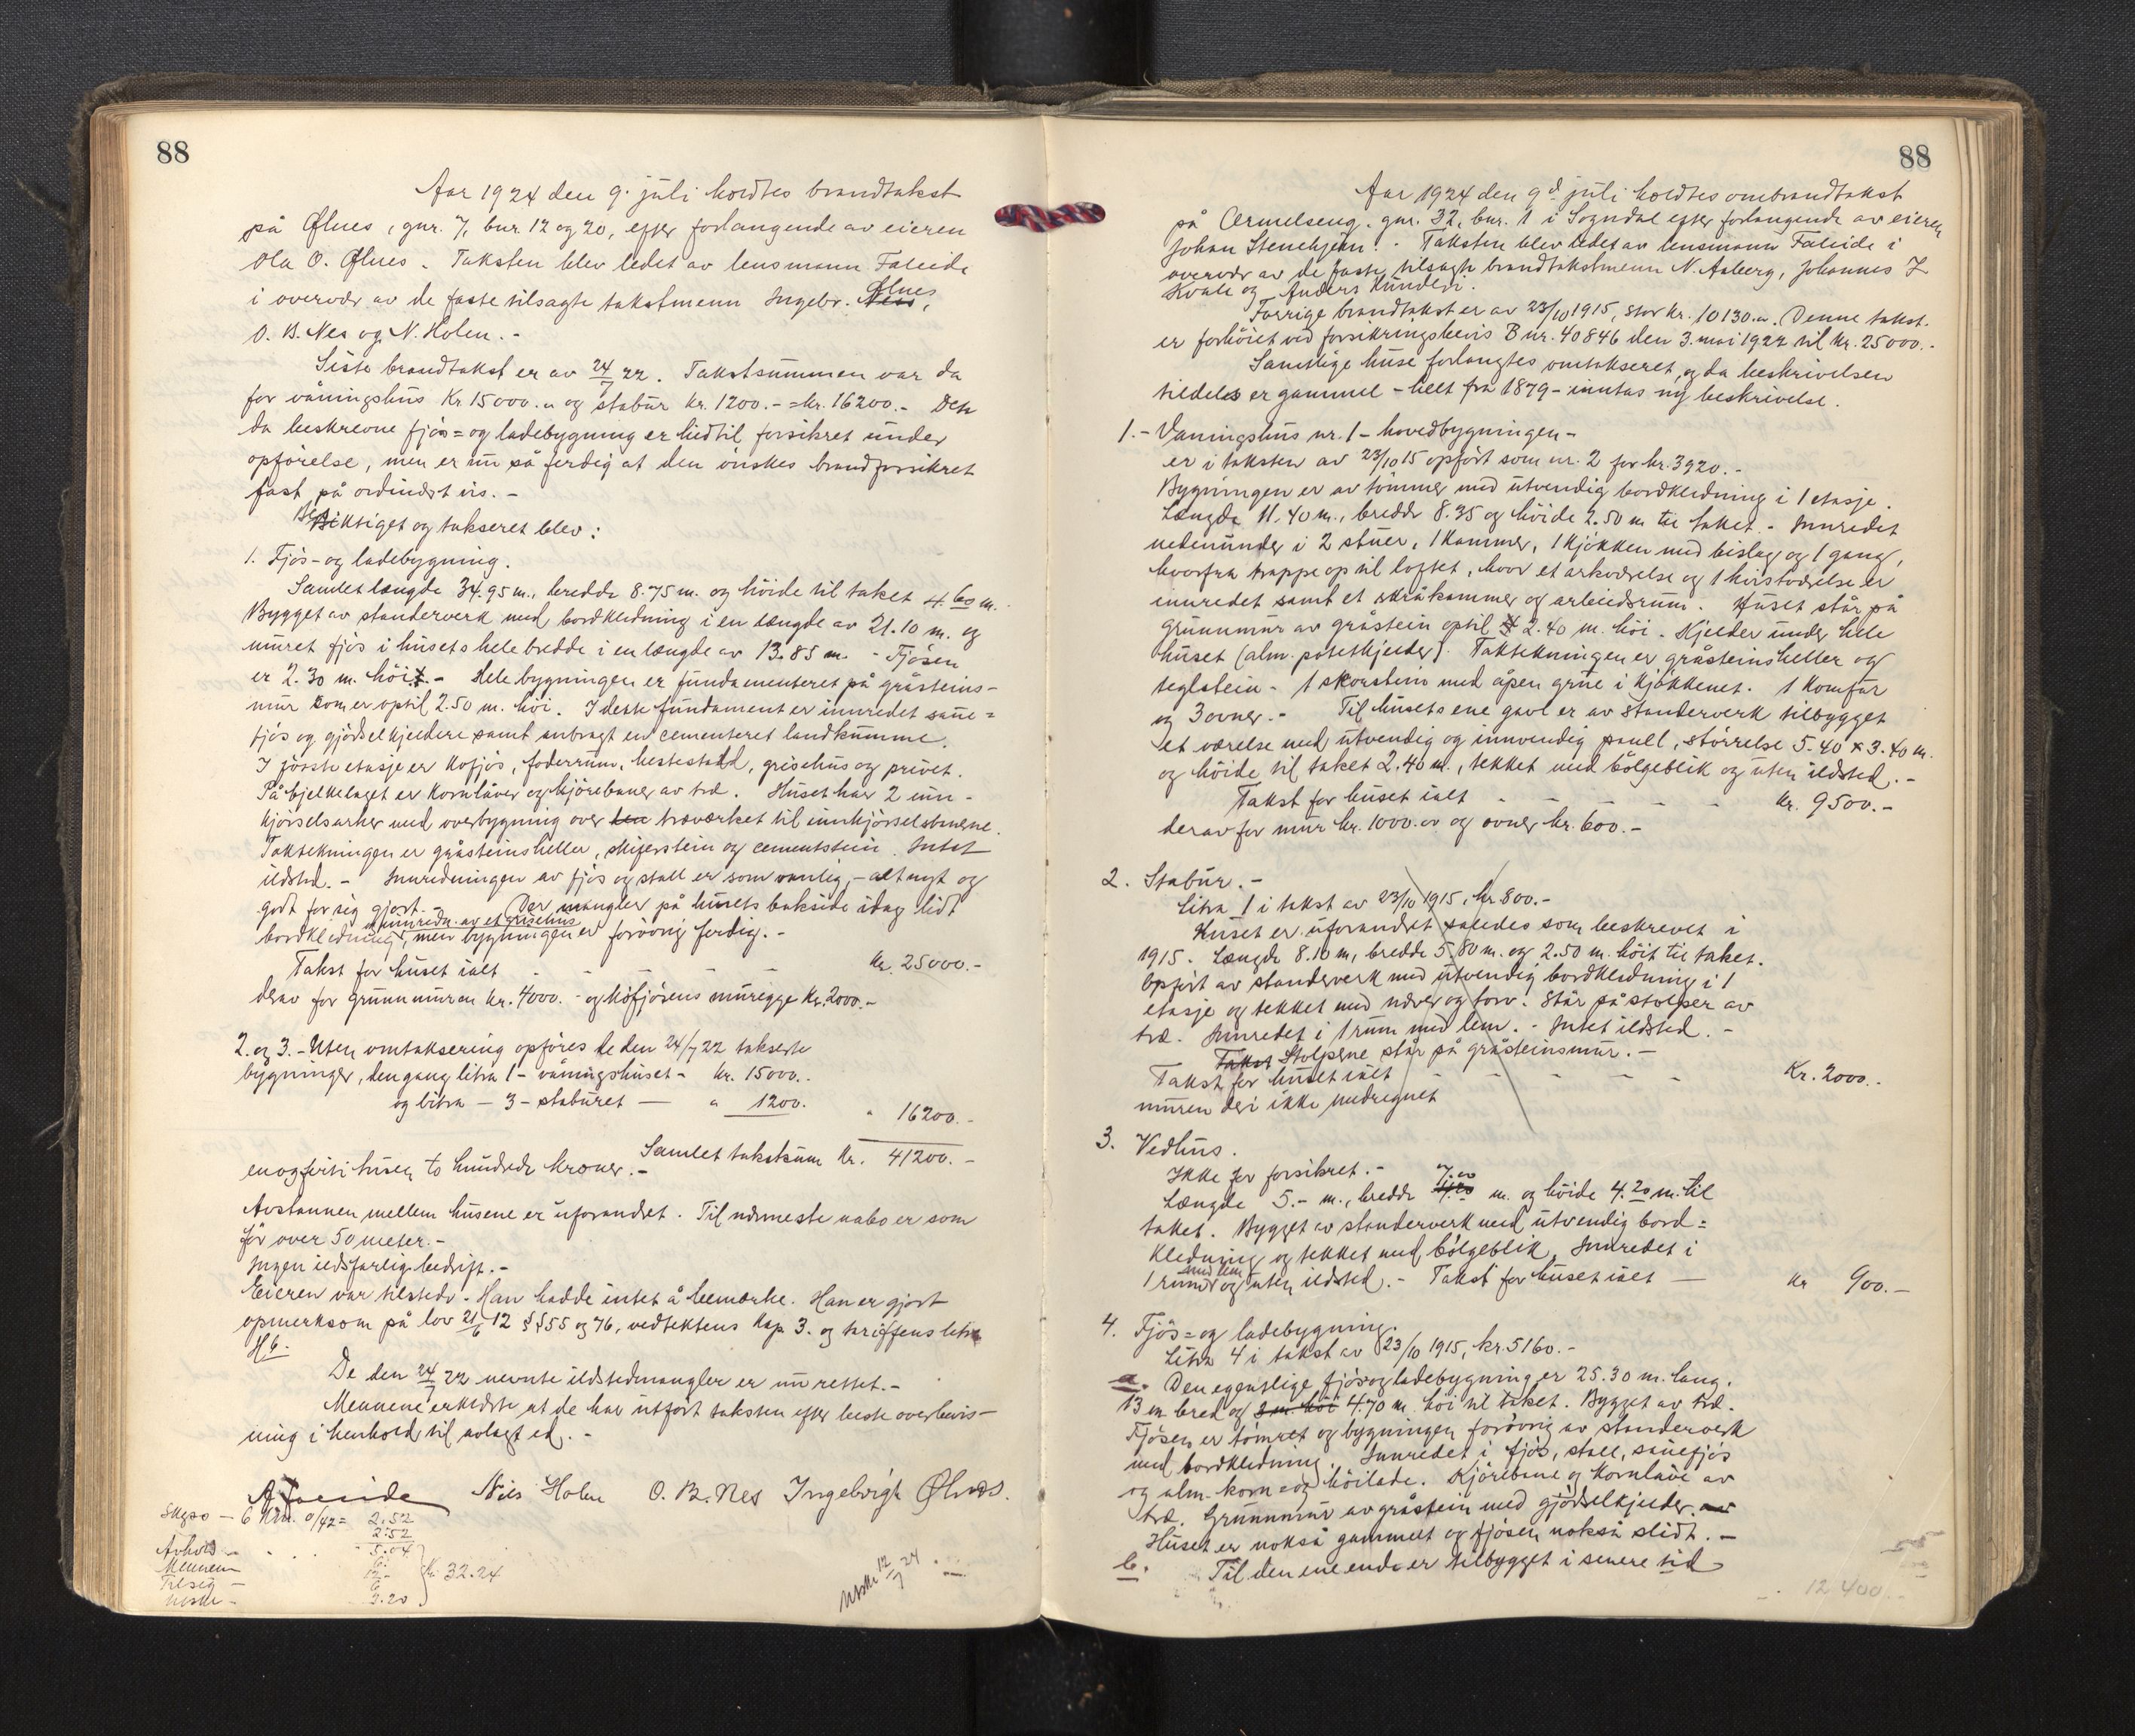 88
Aar 1924 den 9. juli holdtes brandtakst
på Ølnes, gnr. 7, bnr 12 og 20, efter forlangende av eieren
Ola O. Ølnes. Taksten blev ledet av lensmann Faleide
i overvær av de faste tilsagte takstmenn Ingebr. Ness, Ølnes
O. B. Nes og N. Holen. -
Siste brandtakst er av 24/7 22. Takstsummen var da
for våningshus Kr 15000.- og stabur kr. 1200.- = kr. 16200.- Den
da beskrevne fjøs= og ladebygning er hidtil forsikret under
opførelse, men er nu så ferdig at den ønskes brandforsikret
fast på ordinært vis. -
Besiktiget og takseret blev:
1. Fjøs- og ladebygning.
Samlet længde 34.95 m., bredde 8.75 m. og høide til taket 4.60 m.
Bygget av standerverk med bordkledning i en længde av 21.10 m. og
muret fjøs i husets hele bredde i en længde av 13.85 m. - Fjøsen
er 2.30 m. høi. - Hele bygningen er fundamenteret på gråsteins-
mur som er optil 2.50 m. høi. I dette fundament er innredet saue=
fjøs og gjødselkjeldere samt anbragt en cementeret landkumme.
I første etasje er kofjøs, foderrum, hestestald, grisehus og privet.
På bjelkelaget er kornlåver og kjørebaner av træ. Huset har 2 inn-
kjørselsarker med overbygning over den træværket til innkjørselsbruene.
Taktekningen er gråsteinsheller, skiferstein og cementstein. Intet
ildsted. - Innredningen av fjøs og stall er som vanlig, - alt nyt og
godt for sig gjort. - Der mangler på husets bakside idag lidt
bordkledning og innredn. av et grisehus, men bygningen er forøvrig ferdig. -
Takst for huset ialt - - - - - kr. 25000.-
derav for grunnmuren kr. 4000.- og kofjøsens murvegge kr. 2000.-
2. og 3. - Uten omtaksering opføres de den 24/7 22 takserte
bygninger, dengang litra 1 - våningshuset - kr. 15000..
og litra - 3 - staburet — " 1200. " 16200.-
Samlet takstsum kr. 41200.-
enogførti tusen to hundrede kroner. -
Avstannen mellem husene er uforandret. Til nærmeste nabo er som
før over 50 meter. -
Ingen ildsfarlig bedrift. -
Eieren var tilstede. Han hadde intet å bemærke. Han er gjort
opmerksom på lov 21/6 12 §§ 55 og 76, vedtektens kap 3. og tariffens litra
H 6.
De den 24/7 22 nevnte ildstedmangler er nu rettet. -
Mennene erklærte at de har utført taksten efter beste overbevis-
ning i henhold til avlagt ed. -
A Faleide Nils Holen O. B. Nes Ingebrigt Ølnes.
Skyss — 6 km. a/42 = 2.52
2.52
5.04
Mennene 12.-
Tilsig — 6
Utskr — 3.20
Kr. 32.24
Utskr 12/7 24
88
Aar 1924 den 9d juli holdtes ombrandtakst
på Ormelseng, gnr. 32, bnr. 1 i Sogndal efter forlangende av eieren
Johan Stenehjem. - Taksten blev ledet av lensmann Faleide i
overvær av de faste, tilsagte brandtakstmenn N. Aaberg, Johannes J.
Kvåle og Anders Hundere.
Forrige brandtakst er av 23/10 1915, stor kr. 10130.-. Denne takst.
er forhøiet ved forsikringsbevis B nr. 40846 den 3. mai 1922 til kr. 25000.-
Samtlige huse forlangtes omtakseret, og da beskrivelsen
tildels er gammel - helt fra 1879 - inntas ny beskrivelse.
1. - Vaningshus nr. 1 - hovedbygningen -
er i taksten av 23/10 15 opført som nr. 2 for kr. 3920. -
Bygningen er av tømmer med utvendig bordkledning i 1 etasje.
Længde 11.40 m., bredde 8.35 og høide 2.50 m til taket. - Innredet
nedenunder i 2 stuer, 1 kammer, 1 kjøkken med bislag og 1 gang,
hvorfra trappe op til loftet, hvor et arkværelse og 1 kvistværelse er
innredet samt et skråkammer og arbeidsrum. Huset står på
grunnmur av gråstein optil 2.40 m. høi. Kjelder under hele
huset (alm. potetkjelder). Taktekningen er gråsteinsheller og
teglstein. - 1 skorstein med åpen grue i kjøkkenet. 1 komfur
og 3 ovner. - Til husets ene gavl er av standerverk tilbygget
et værelse med utvendig og innvendig panel, størrelse 5.40 x 3.40 m.
og høide til taket 2.40 m., tekket med bølgeblik og uten ildsted. -
Takst for huset ialt - - - - - kr. 9500.-
derav for mur kr. 1000.- og ovner kr. 600.-
2. Stabur. -
Litra 1 i takst av 23/10 1915, kr. 800.-
Huset er uforandret således som beskrevet i
1915. Længde 8.10 m, bredde 5.80 m. og 2.50 m. høit til taket.
Opført av standerverk med utvendig bordkledning i 1
etasje og tekket med næver og torv. Står på stolper av
træ. Innredet i 1 rum med lem. - Intet ildsted. -
Takst Stolpene står på gråsteinsmur. -
Takst for huset ialt - - - - - Kr. 2000.-
muren deri ikke medregnet
3. Vedhus.
Ikke før forsikret. -
Længde 5.- m., bredde 7.00 m. og høide 4.20 m. til
taket. Bygget av standerverk med utvendig bord=
kledning og tekket med bølgeblik. Innredet i
1 rum med lem og uten ildsted. - Takst for huset ialt — kr 900.-
4. Fjøs= og ladebygning.
Litra 4 i takst av 23/10 1915, kr. 5160.-
a. Den egentlige fjøs og ladebygning er 25.30 m. lang.
13 m bred og 3 m. høi 4.70 m. høi til taket. Bygget av træ.
Fjøsen er tømret og bygningen forøvrig av standerverk
med bordkledning. Innredet i fjøs, stall, sauefjøs
og alm. korn= og høilade. Kjørebane og kornlåve av
træ. Grunnmur av gråstein med gjødselkjelder. av
Huset er nokså gammelt og fjøsen nokså slidt. -
b. Til den ene ende er tilbygget i senere tid
12 400.-